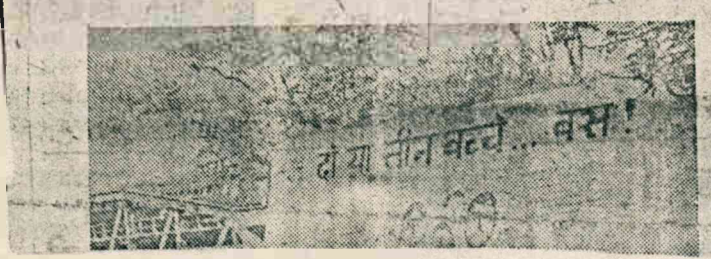 दो या तीन बच्चे... बस!